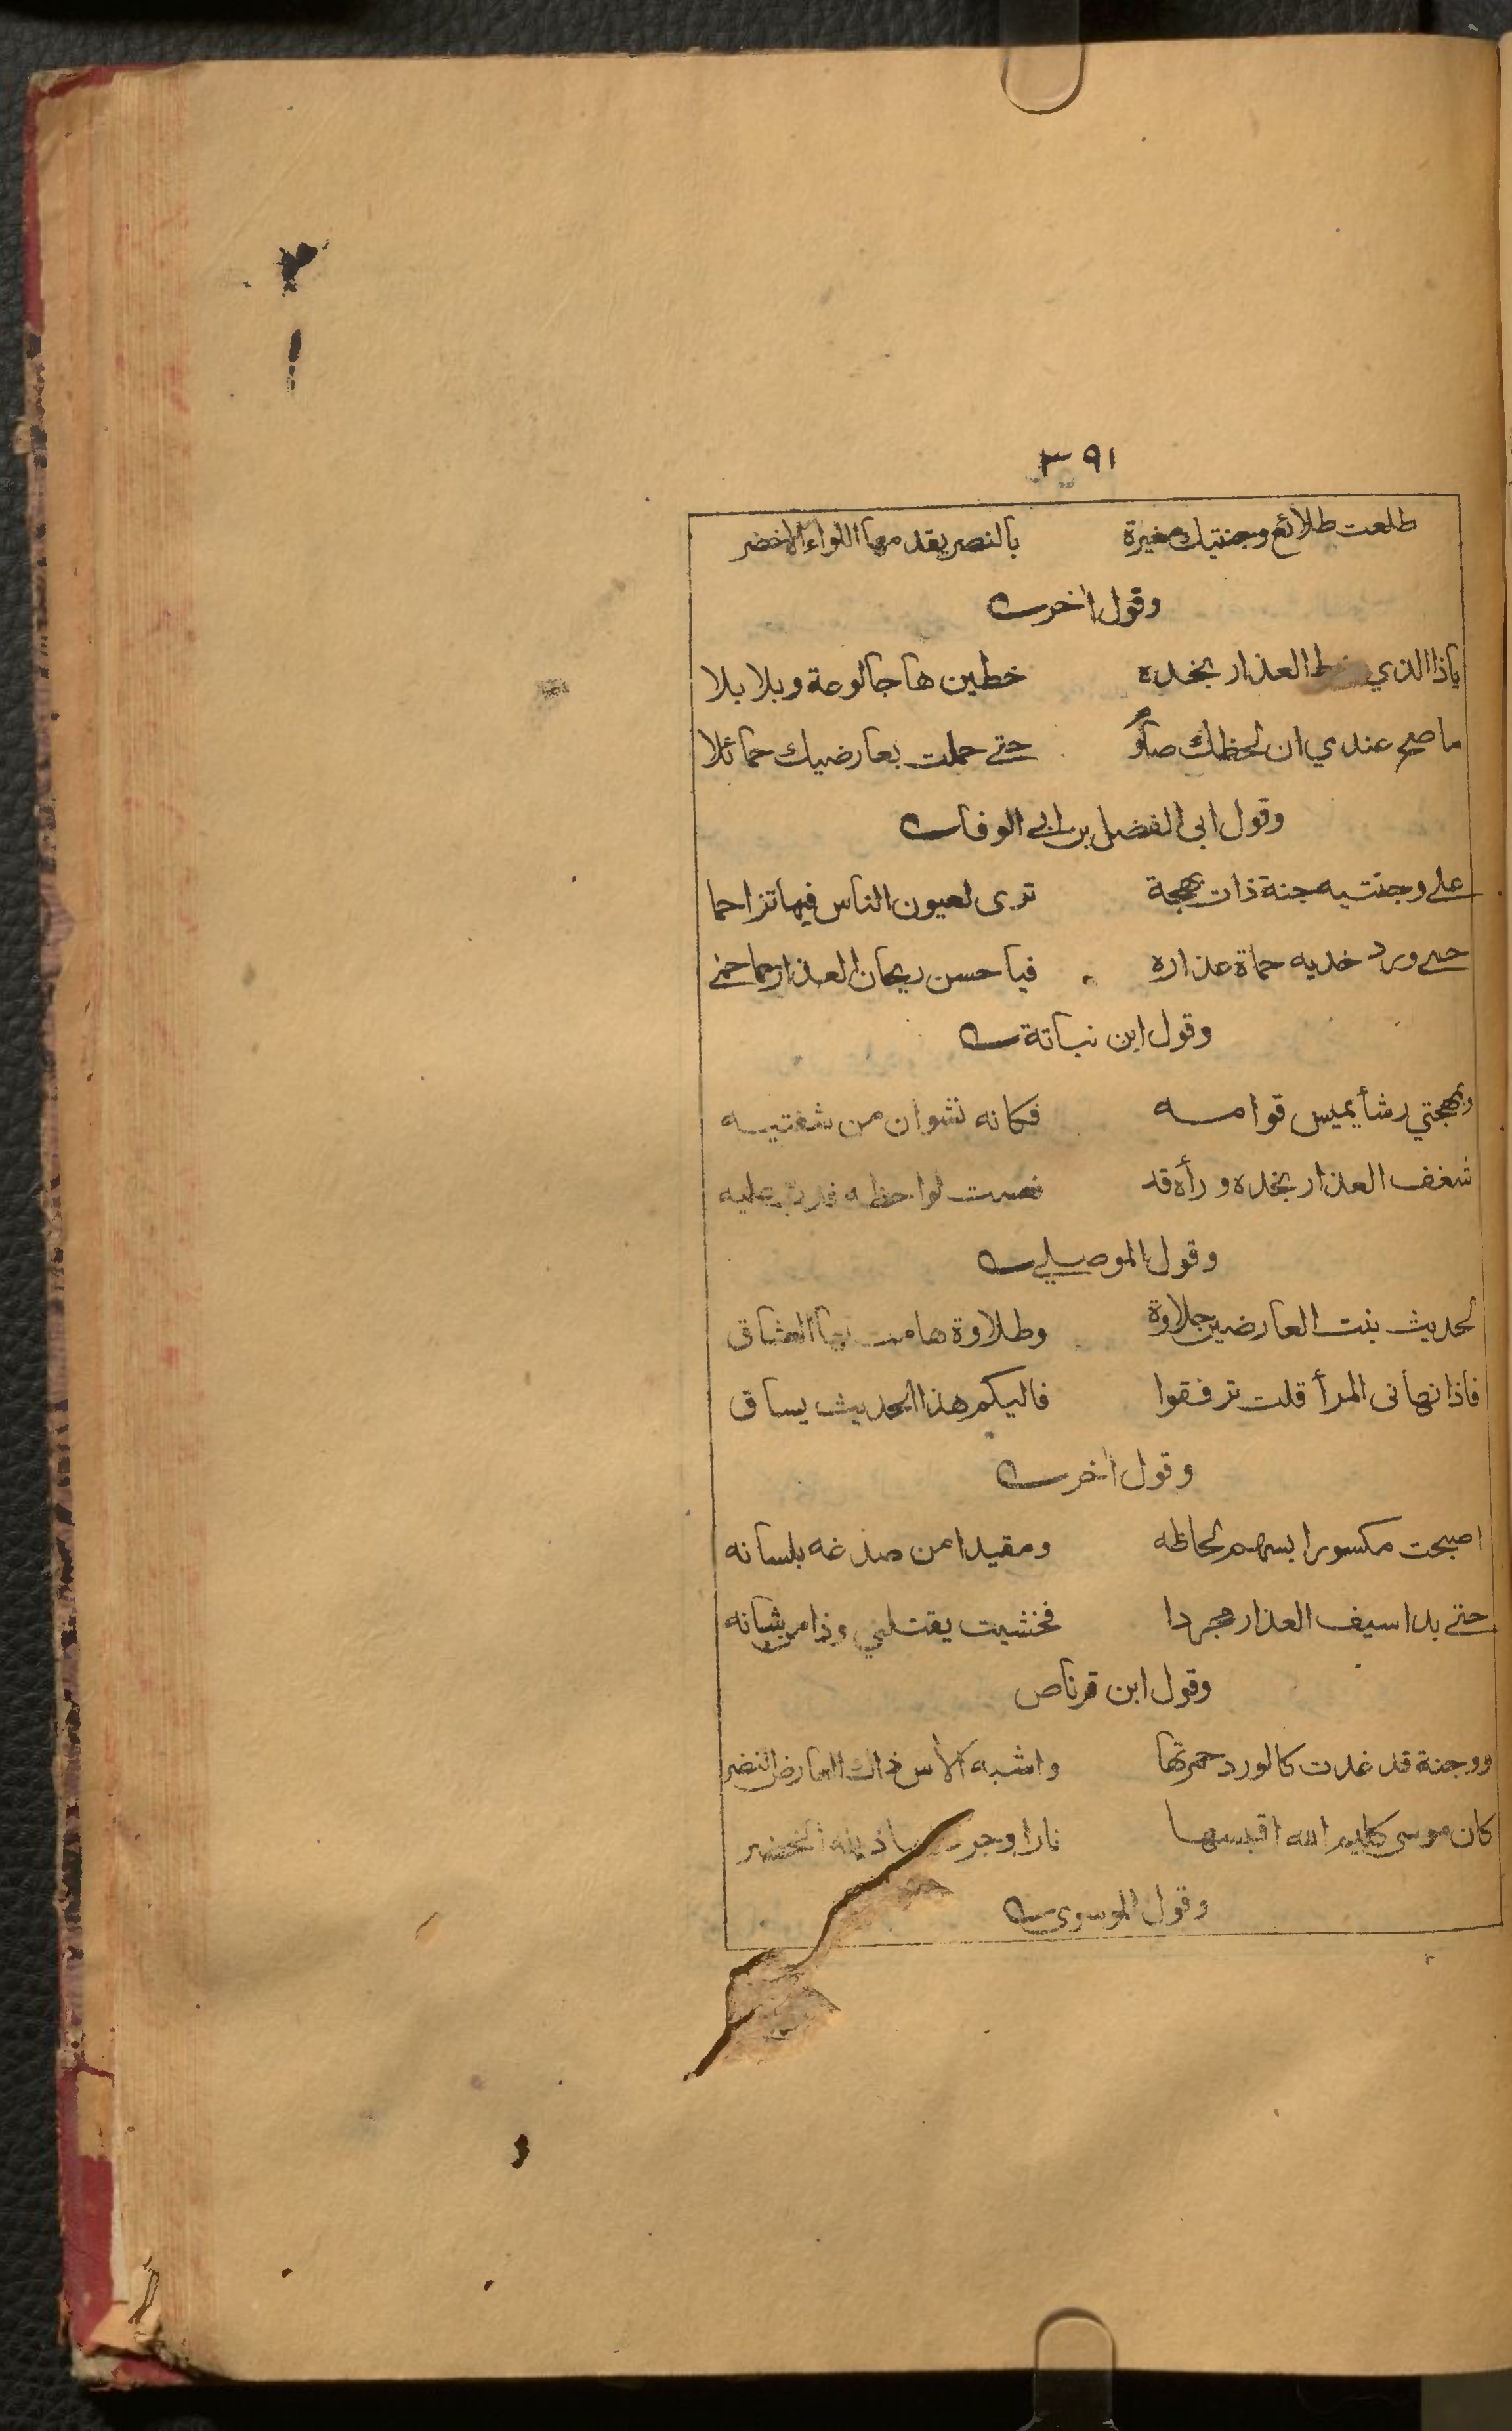 ٣٩١
طلعت طلائع وجنتيك مغيرة بالنصر يقدمها اللواء الاخضر
وقول اخر
ياذا الذي خط العذار بخده خطين هاجا لوعة وبلابلا
ما صح عندي ان لحظك صارم حتى حملت بعارضيك حمائلا
وقول ابي الفضل بن ابي الوفا
على وجنتيه جنة ذات بهجة ترى لعيون الناس فيها تزاحما
حمى ورد خديه حماة عذاره فيا حسن ريحان العذار حماحمى
وقول ابن نباتة
وبمهجتي رشأ يميس قوامه فكانه نشوان من شفتيه
شغف العذار بخده ورأه قد نعست لواحظه فدب عليه
وقول الموصلي
لحديث بنت العارضين حلاوة وطلاوة هامت بها العشاق
فاذا نهاني المرأ قلت ترفقوا فاليكم هذا الحديث يساق
وقول اخر
اصبحت مكسورا بسهم لحاظه ومقيدا من صدغه بلسانه
حتى بدا سيف العذار مجردا فخشيت يقتلني وذا من شانه
وقول ابن قرناص
ووجنة قد غدت كالورد حمرتها واشبه الاس ذاك العارض النضر
كان موسى كليم الله اقبسها نارا وجر اذيله الخضر
وقول الموسوي